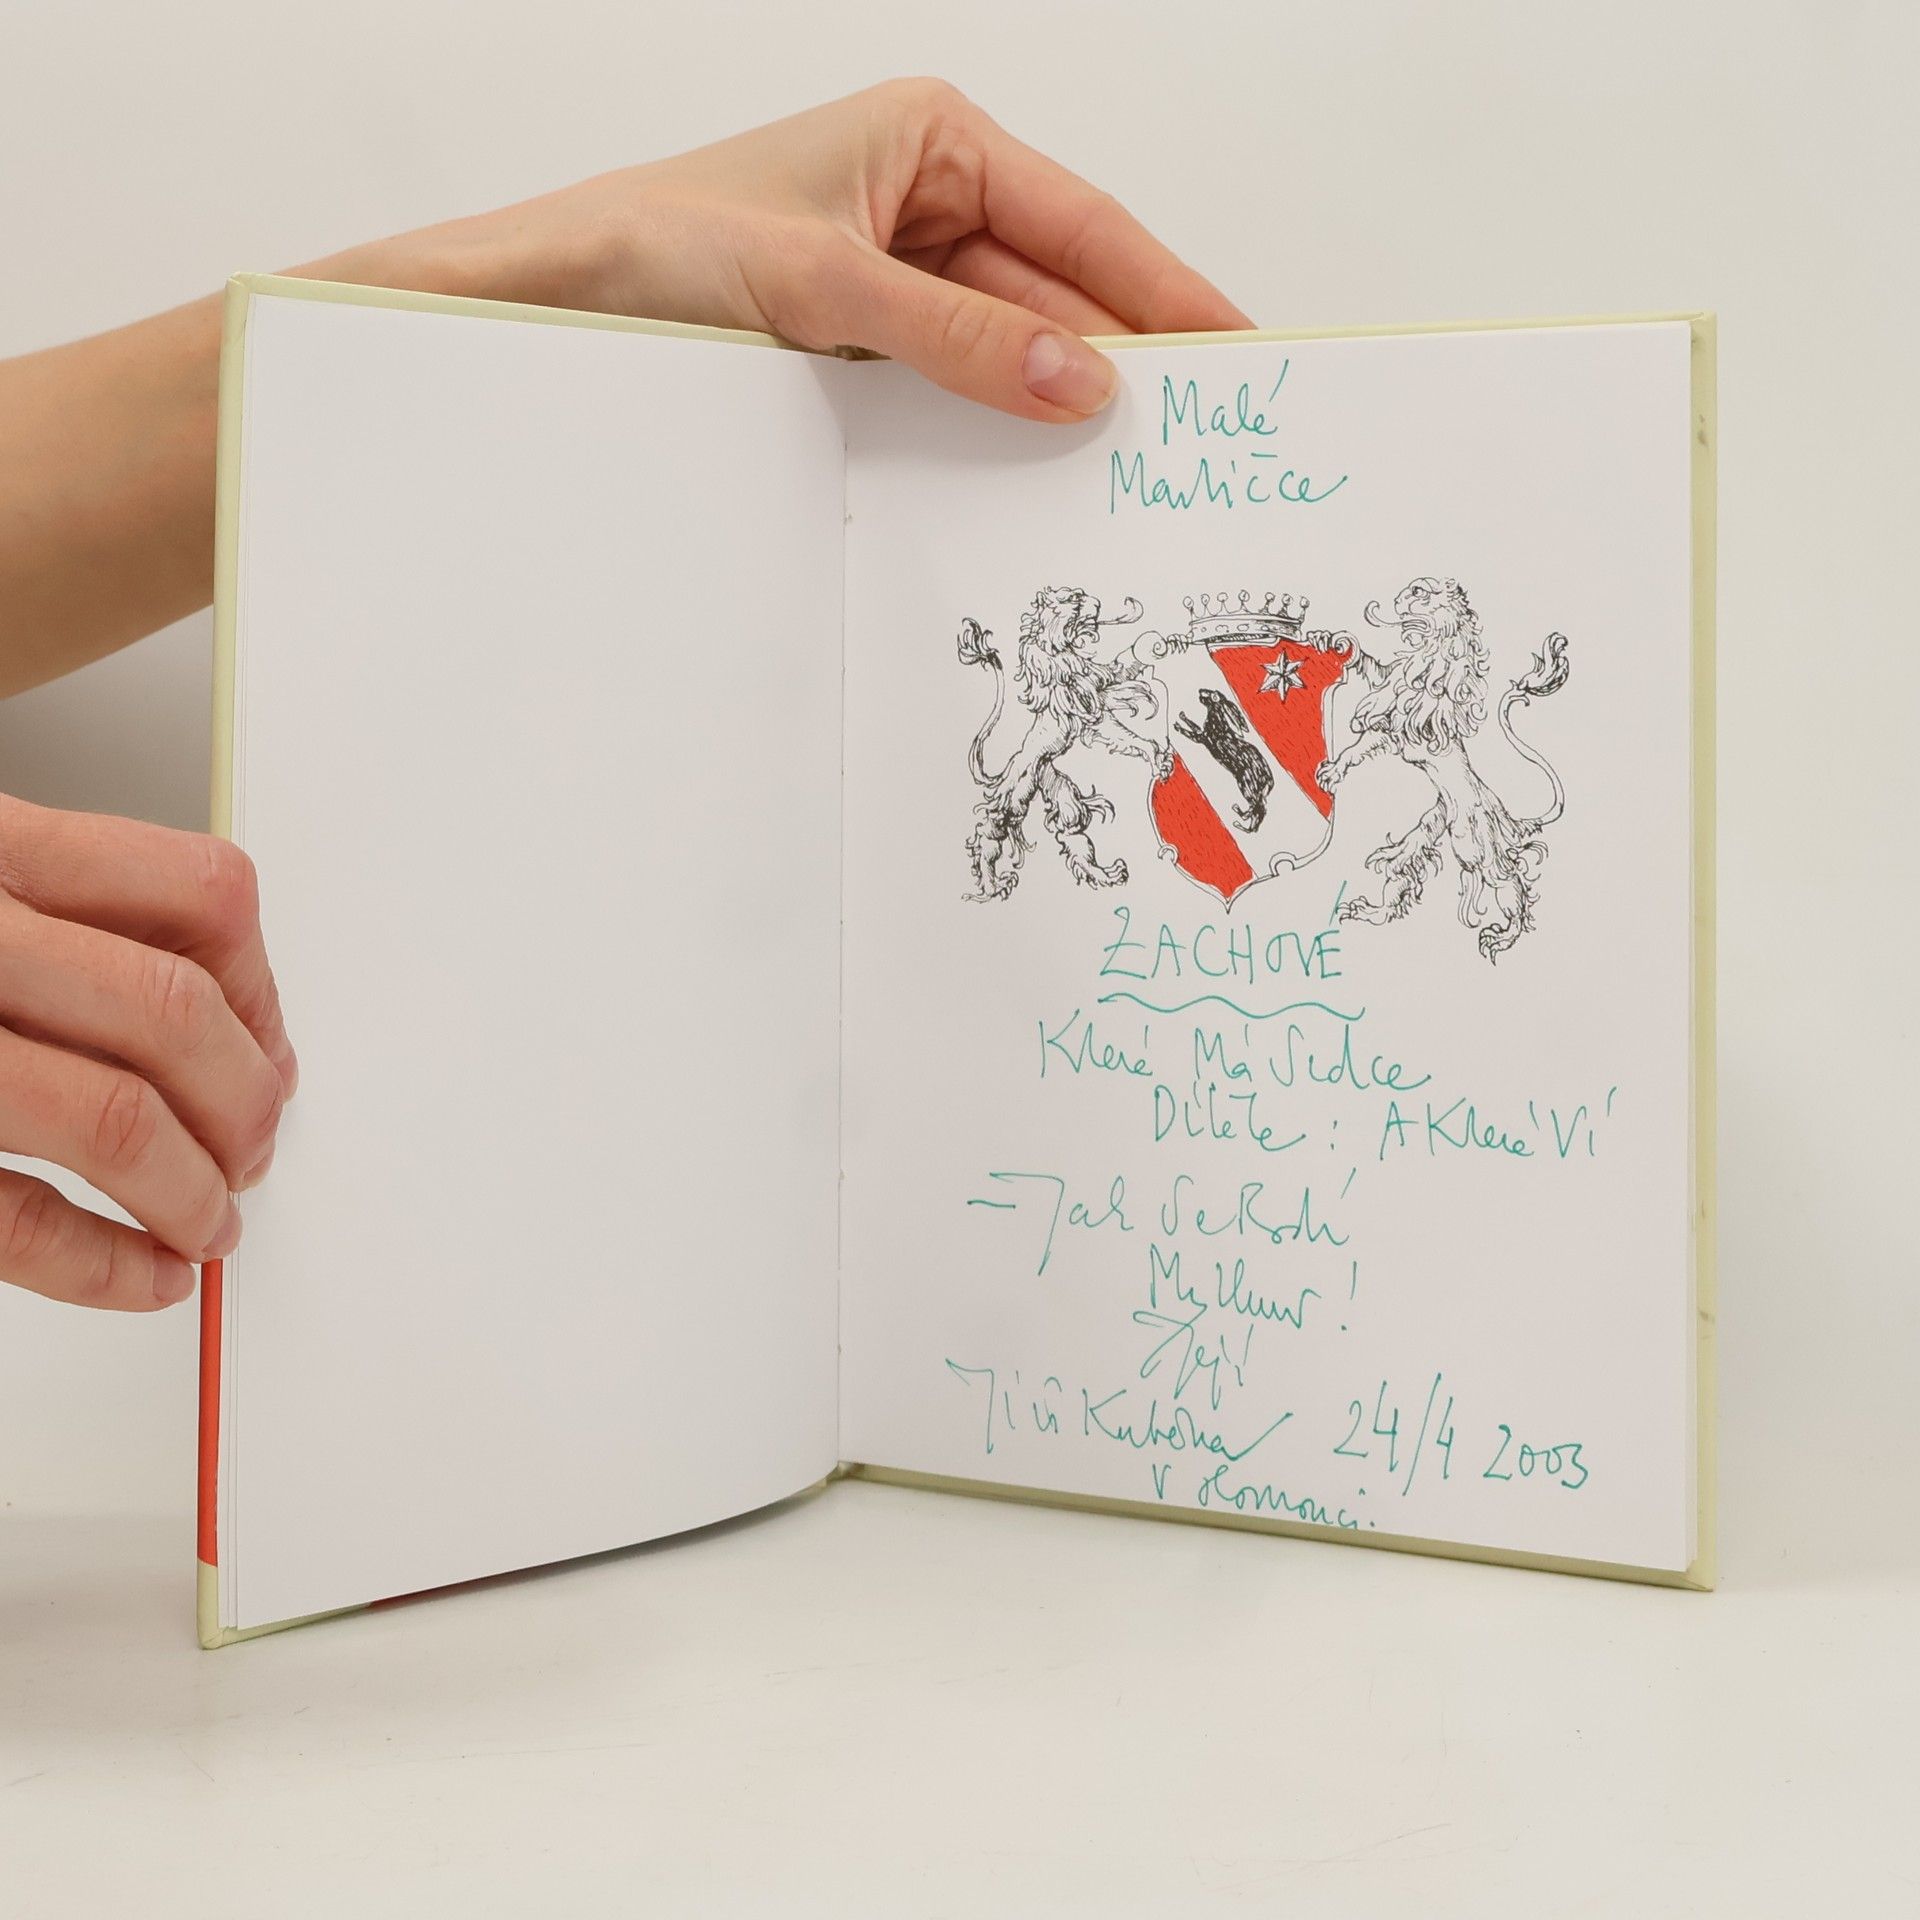 Malé
Martičce
ŽACHOVÉ
Které Má Srdce
Dítěte : A Které Ví
= Jak Se Rodí
Její
Jiří Kuběna 24/4 2003
V Olomouci.